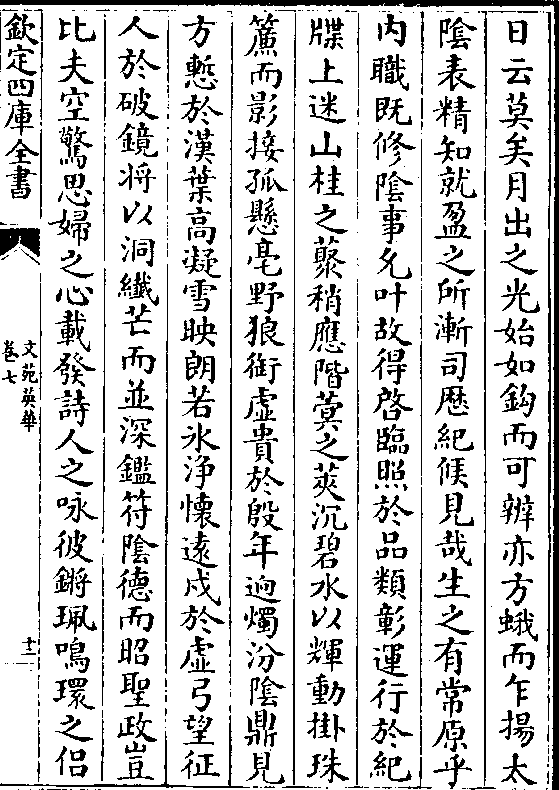 日云莫矣月出之光始如鈎而可辨亦方蛾而乍揚太
陰表精知就盈之所漸司歴紀候見哉生之有常原乎
内職既修陰事允叶故得啓臨照於品類彰運行於紀
牒上迷山桂之藂稍應階蓂之莢沉碧水以輝動掛珠
簾而影接孤懸亳野狼銜虚貴於殷年逈燭汾陰鼎見
方慙於漢葉高凝雪映朗若氷浄懐逺戍於虚弓望征
人於破鏡将以洞纎芒而並深鑑符陰德而昭聖政豈
比夫空驚思婦之心載發詩人之咏彼鏘珮鳴環之侣
欽定四庫全書
文苑英華
卷七
十二